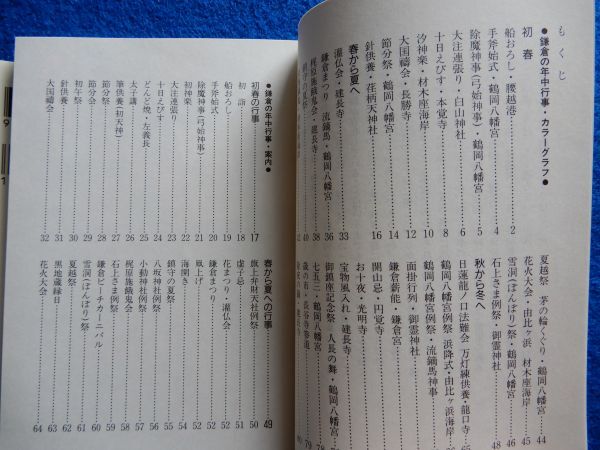 もくじ
●鎌倉の年中行事・カラーグラフ●
初春
船おろし・腰越港 2
手斧始式・鶴岡八幡宮 4
除魔神事（弓始神事）・鶴岡八幡宮 5
大注連張り・白山神社 6
十日えびす・本覚寺 8
汐神楽・材木座海岸 9
大国禱会・長勝寺 10
節分祭・鶴岡八幡宮 14
針供養・荏柄天神社 16
春から夏へ
灌仏会・建長寺 33
鎌倉まつり 流鏑馬・鶴岡八幡宮 36
梶原施餓鬼会・建長寺 38
40
42
夏越祭 茅の輪くぐり・鶴岡八幡宮 44
花火大会・由比ヶ浜 材木座海岸 45
雪洞（ぼんぼり）祭・鶴岡八幡宮 46
石上さま例祭・御霊神社 48
秋から冬へ
日蓮龍ノ口法難会 万灯練供養・龍口寺 65
鶴岡八幡宮例祭 浜降式・由比ヶ浜海岸 66
鶴岡八幡宮例祭・流鏑馬神事
面掛行列・御霊神社
鎌倉薪能・鎌倉宮
開山忌・円覚寺
お十夜・光明寺
宝物風入れ・建長寺
御鎮座記念祭 人長の舞・鶴岡八幡宮
七五三・鶴岡八幡宮
歳の市・長谷寺参道
●鎌倉の年中行事・案内●
初春の行事 17
初詣 18
船おろし 19
手斧始式 20
除魔神事（弓始神事） 21
初神楽 22
大注連張り 23
十日えびす 24
どんど焼・左義長 25
太子講 26
筆供養（初天神） 27
節分祭 28
節分会 29
初午祭 30
針供養 31
大国禱会 32
春から夏への行事 49
旗上弁財天社例祭 50
虚子忌 51
花まつり・灌仏会 51
鎌倉まつり 52
凧上げ 52
海開き 54
鎮守の夏祭 55
八坂神社例祭 56
小動神社例祭 57
梶原施餓鬼会 58
石上さま例祭 59
鎌倉ビーチカーニバル 60
雪洞（ぼんぼり）祭 61
夏越祭 62
黒地蔵縁日 63
花火大会 64